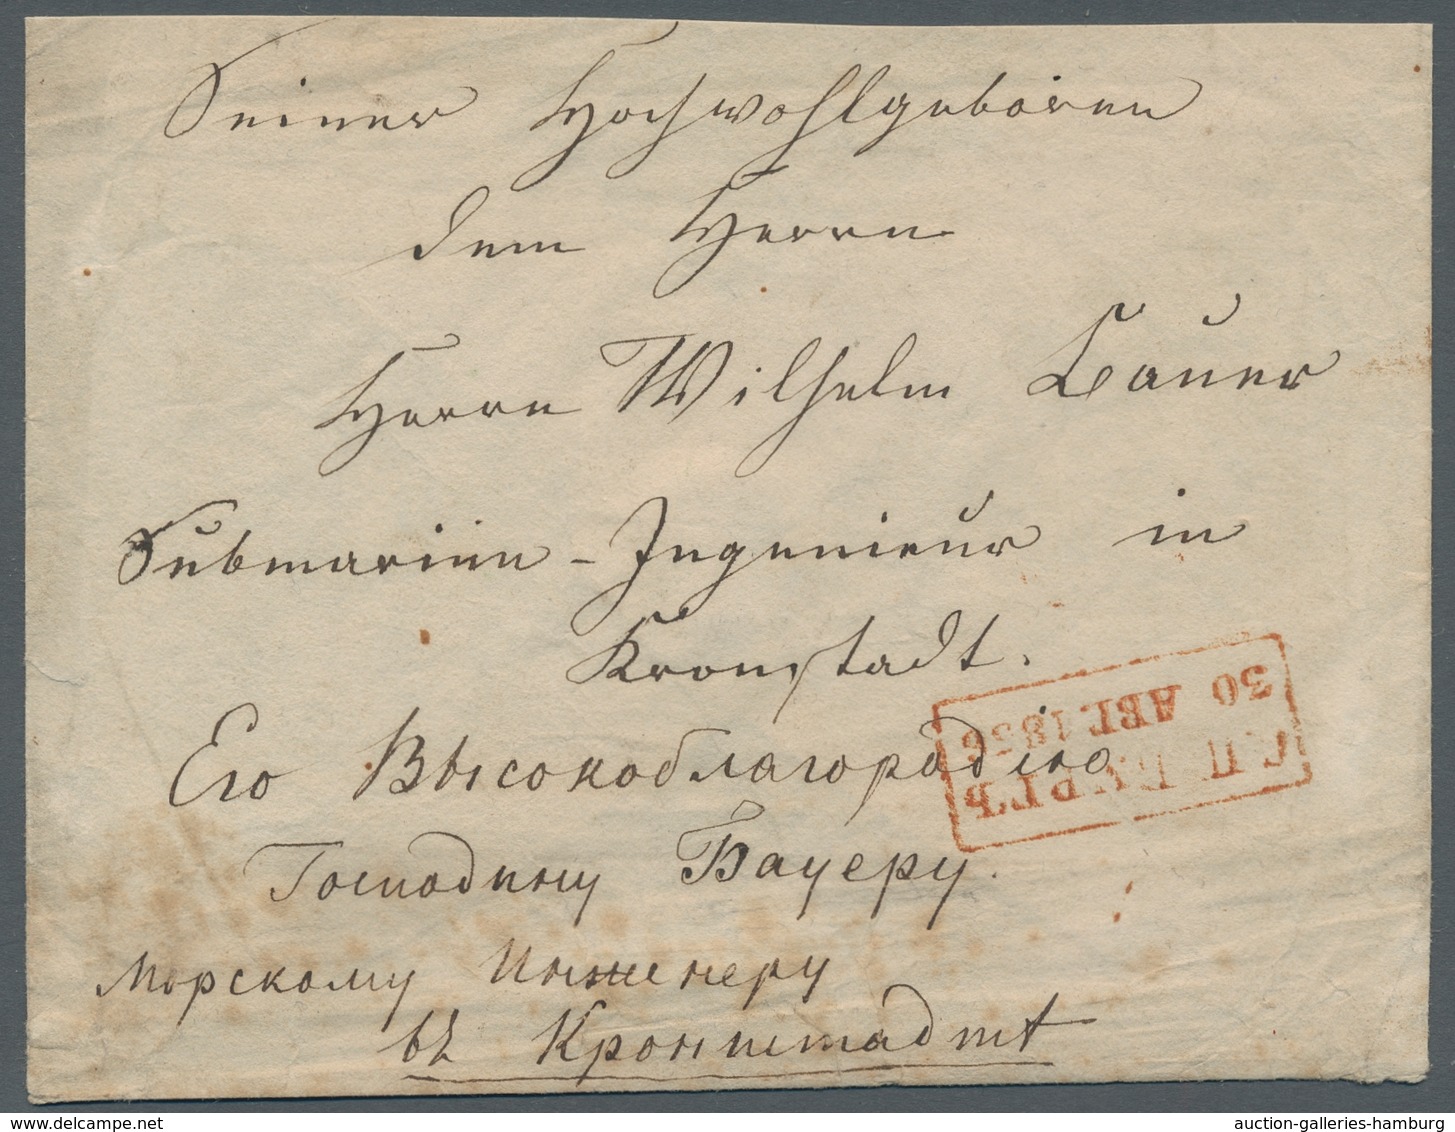 Seiner Hochwohlgeboren
dem Herrn
Herrn Wilhelm Bauer
Submarine-Ingenieur in
Kronstadt.
30 АВГ. 1856
С.П.БУРГЪ
Его Высокоблагородію
Господину Бауеру.
Морскому Инженеру
въ Кронштадтѣ
www.delcampe.net
auction-galleries-hamburg